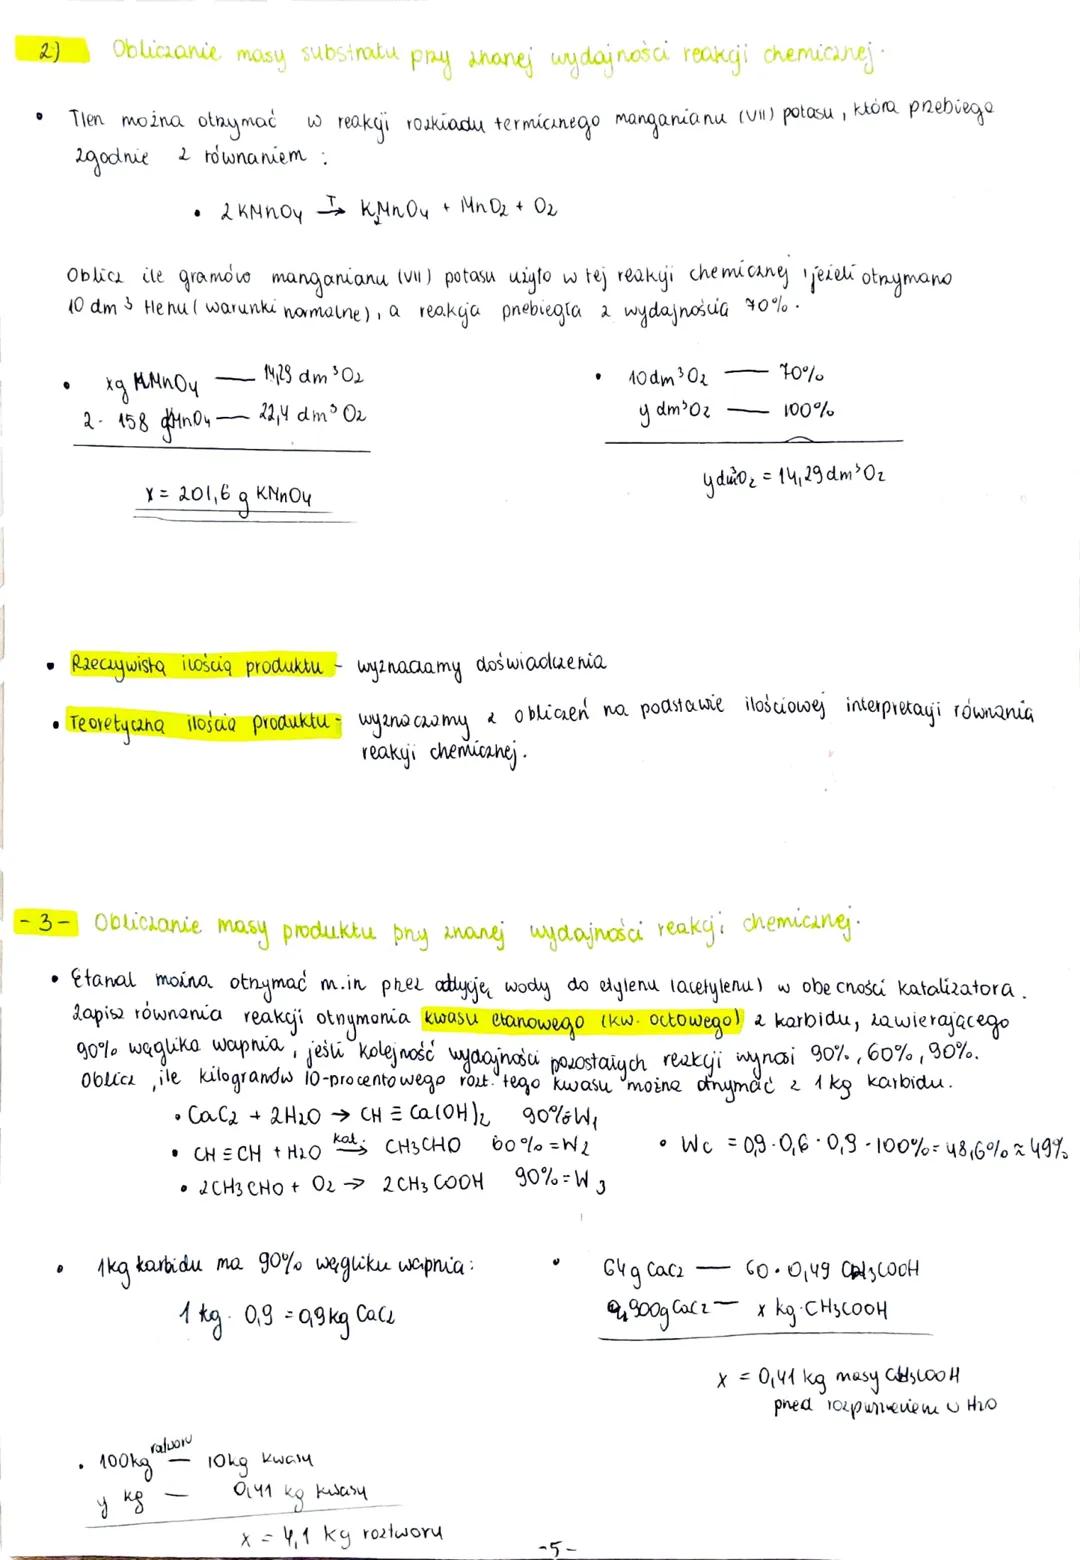 2) Obliczanie masy substratu przy znanej wydajności reakcji chemicznej.
• Tlen można otrzymać w reakcji rozkładu termicznego manganianu (VII) potasu, która przebiega
zgodnie z równaniem :
• 2KMnO4 T→ K2MnO4 + MnO2 + O2
Oblicz ile gramów manganianu (VII) potasu użyto w tej reakcji chemicznej, jeżeli otrzymano
10 dm3 tlenu (warunki normalne), a reakcja przebiegła z wydajnością 70%.
• xg KMnO4 — 14,29 dm3O2
2· 158 gKMnO4 — 22,4 dm3O2
x = 201,6 g KMnO4
• 10dm3O2 — 70%
y dm3O2 — 100%
ydm3O2 = 14,29dm3O2
• Rzeczywistą ilością produktu - wyznaczamy doświadczenia
• Teoretyczną ilością produktu - wyznaczamy z obliczeń na podstawie ilościowej interpretacji równania
reakcji chemicznej.
-3- Obliczanie masy produktu przy znanej wydajności reakcji chemicznej.
• Etanal można otrzymać m.in przez addycję wody do etylenu (acetylenu) w obecności katalizatora.
Zapisz równania reakcji otrzymania kwasu etanowego (kw. octowego) z karbidu, zawierającego
90% węglika wapnia, jeśli kolejność wydajności pozostałych reakcji wynosi 90%, 60%, 90%.
Oblicz, ile kilogramów 10-procentowego rozt. tego kwasu można otrzymać z 1kg karbidu.
• CaC2 + 2H2O → CH ≡ Ca(OH)2 90%=W1
• CH ≡ CH + H2O kat.→ CH3CHO 60%=W2
• 2CH3CHO + O2 → 2CH3COOH 90%=W3
• Wc = 0,9·0,6·0,9·100%=48,6%≈49%
• 1kg karbidu ma 90% węgliku wapnia:
1 kg · 0,9 = 0,9kg CaC2
• 64g CaC2 — 60·0,49 CH3COOH
900g CaC2 — x kg CH3COOH
x = 0,41 kg masy CH3COOH
przed rozpuszczeniem w H2O
• 100kg roztworu — 10kg kwasu
y kg — 0,41 kg kwasu
x = 4,1 kg roztworu
-5-